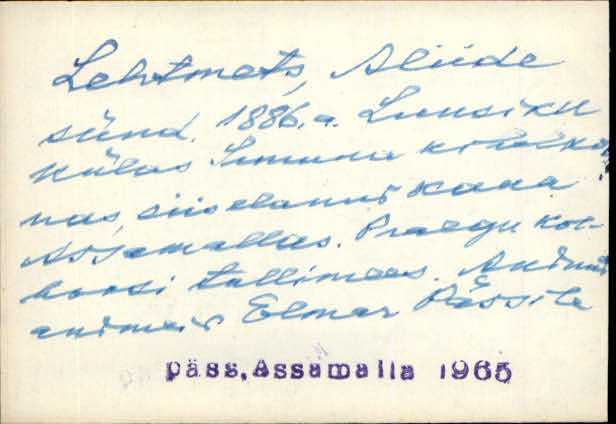 Lehtmets, Aliide
sünd. 1886. a. Luusiku
külas Simuna kihelkon
nas, siis elanud kaua
Assamallas. Praegu kol-
hoosi tallimees. Andnud
andmeid Elmar Pässile
Päss, Assamalla 1965